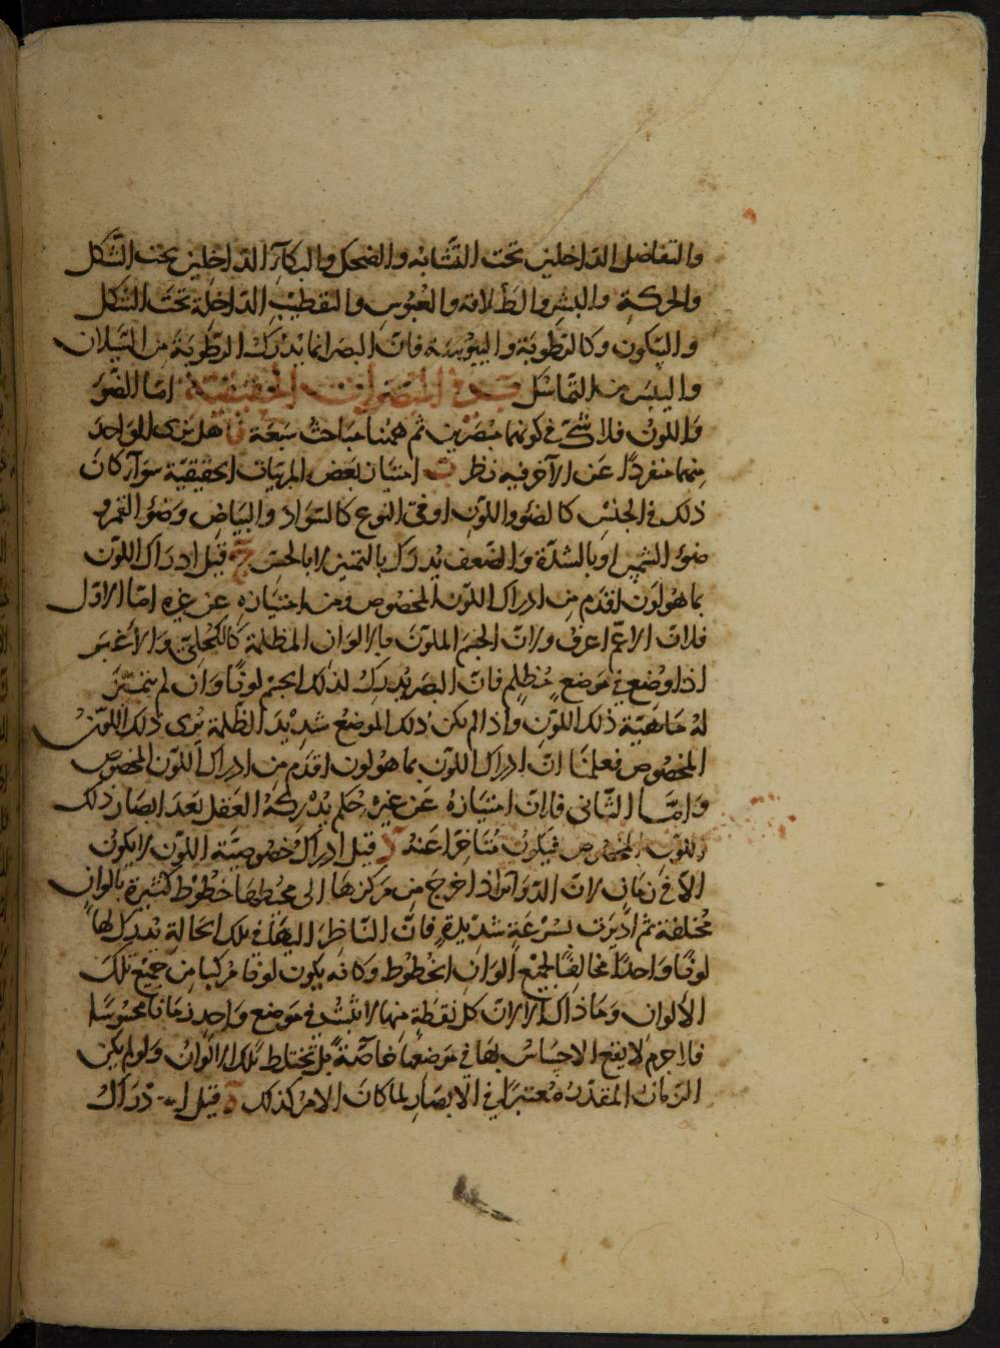 والتفاضل الداخلين تحت التشابه والضحك والبكآء الداخلين تحت الشكل
والحركة والبشر والطلاقة والعبوس والتقطيب الداخلة تحت الشكل
والسكون وكالرطوبة واليبوسة فان البصر انما يدرك الرطوبة من السيلان
واليبس من التماسك في المبصرات الحقيقية اما الضوء
واللون فلا شك في كونهما مبصرين ثم ههنا مباحث سبعة ا هل يرى الواحد
منهما منفردا عن الآخر فيه نظر ب امتياز بعض المرئيات الحقيقية سوآء كان
ذلك في الجنس كالضوء واللون او في النوع كالسواد والبياض وضوء القمر و
ضوء الشمس او بالشدة والضعف يدرك بالتميز لا بالحس ج قيل ادراك اللون
بما هو لون اقدم من ادراك اللون المخصوص ومن امتيازه عن غيره اما الاول
فلان الاعم اعرف ولان الجسم الملون بالالوان المظلمة كالكحلي والاغبر
اذا وضع في موضع مظلم فان البصر يدرك لذلك الجسم لونا وان لم يتميز
له ماهية ذلك اللون واذا لم يكن ذلك الموضع شديد الظلمة يرى ذلك اللون
المخصوص فعلمنا ان ادراك اللون بما هو لون اقدم من ادراك اللون المخصوص
واما الثاني فلان امتيازه عن غيره حكم يدركه العقل بعد ابصار ذلك
اللون المخصوص فيكون متاخرا عنه د قيل ادراك خصوصية اللون لا يكون
الا في زمان لان الدوامة اذا خرج من مركزها الى محيطها خطوط كثيرة بالوان
مختلفة ثم اديرت بسرعة شديدة فان الناظر اليها في تلك الحالة يدرك لها
لونا واحدا مخالفا لجميع الوان الخطوط وكانه يكون لونا مركبا من جميع تلك
الالوان وما ذاك الا لان كل نقطة منها لا تثبت في موضع واحد زمانا محسوسا
فلا جرم لا يقع الاحساس بها في موضعها خاصة بل تختلط تلك الالوان ولو لم يكن
الزمان المقدر معتبرا في الابصار لما كان الامر كذلك ه قيل ادراك